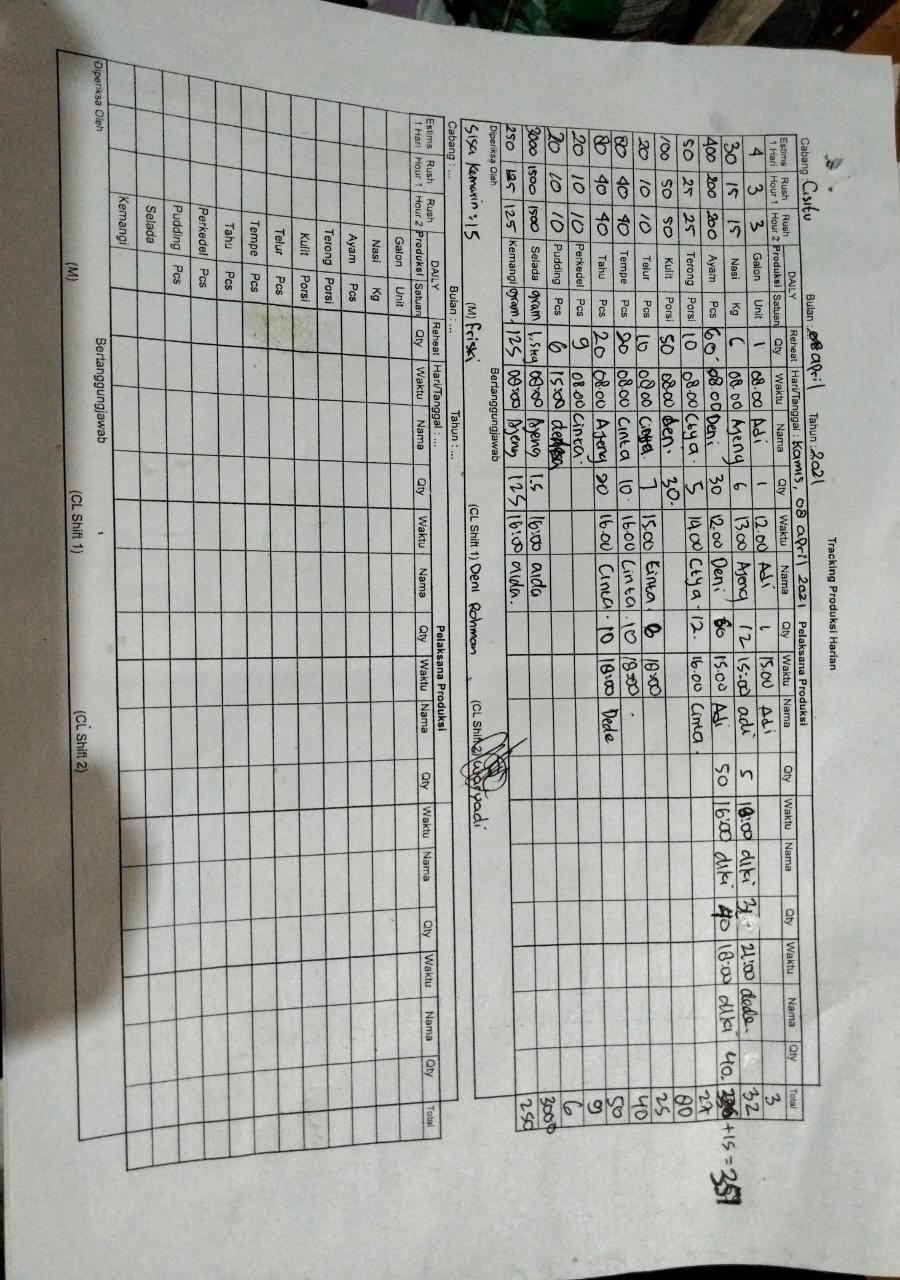 Tracking Produksi Harian
Cabang : Cisitu Bulan : 08 april Tahun : 2021
Estims 1 Hari Rush Hour 1 Rush Hour 2 DAILY Produksi Satuan Reheat Qty Hari/Tanggal : Kamis, 08 april 2021 Pelaksana Produksi
Waktu Nama Qty Waktu Nama Qty Waktu Nama Qty Waktu Nama Qty Waktu Nama Qty Total
4 3 3 Galon Unit 1 08.00 Adi 1 12.00 Adi 1 15.00 Adi 3
30 15 15 Nasi Kg 6 08.00 Ajeng 6 13.00 Ajeng 12 15:00 adi 5 18:00 diki 3 21:00 dede. 32
400 200 200 Ayam Pcs 60 08.00 Deni 30 12.00 Deni 60 15.00 Adi 50 16:00 diki 40 18:00 diki 40 +15 =
50 25 25 Terong Porsi 10 08.00 Ctya. 5 14.00 Ctya. 12. 16.00 Cinta. 27
100 50 50 Kulit Porsi 50 08.00 Deni. 30. 80
20 10 10 Telur Pcs 10 08.00 7 15.00 Cinta. 8 18:00 25
80 40 40 Tempe Pcs 20 08.00 Cinta 10. 16.00 Cinta. 10 18:00 40
80 40 40 Tahu Pcs 20 08.00 Ajeng 20 16.00 Cinta. 10 18:00 Dede 50
20 10 10 Perkedel Pcs 9 08.00 Cinta. 9
20 10 10 Pudding Pcs 6 15:00 6
3000 1500 1500 Selada gram 1.5kg 08:00 Ajeng 1.5 16:00 aida 3000
250 125 125 Kemangi gram 125 08:00 Ajeng 125 16:00 aida. 250
Diperiksa Oleh Bertanggungjawab
Sisa Kemarin : 15 (M) Friski (CL Shift 1) Deni Rohman (CL Shift 2) Waryadi
Cabang : ... Bulan : ... Tahun : ...
Estims 1 Hari Rush Hour 1 Rush Hour 2 DAILY Produksi Satuan Reheat Qty Hari/Tanggal : ... Pelaksana Produksi
Waktu Nama Qty Waktu Nama Qty Waktu Nama Qty Waktu Nama Qty Waktu Nama Qty Total
Galon Unit
Nasi Kg
Ayam Pcs
Terong Porsi
Kulit Porsi
Telur Pcs
Tempe Pcs
Tahu Pcs
Perkedel Pcs
Pudding Pcs
Selada
Kemangi
Diperiksa Oleh Bertanggungjawab
(M) (CL Shift 1) (CL Shift 2)